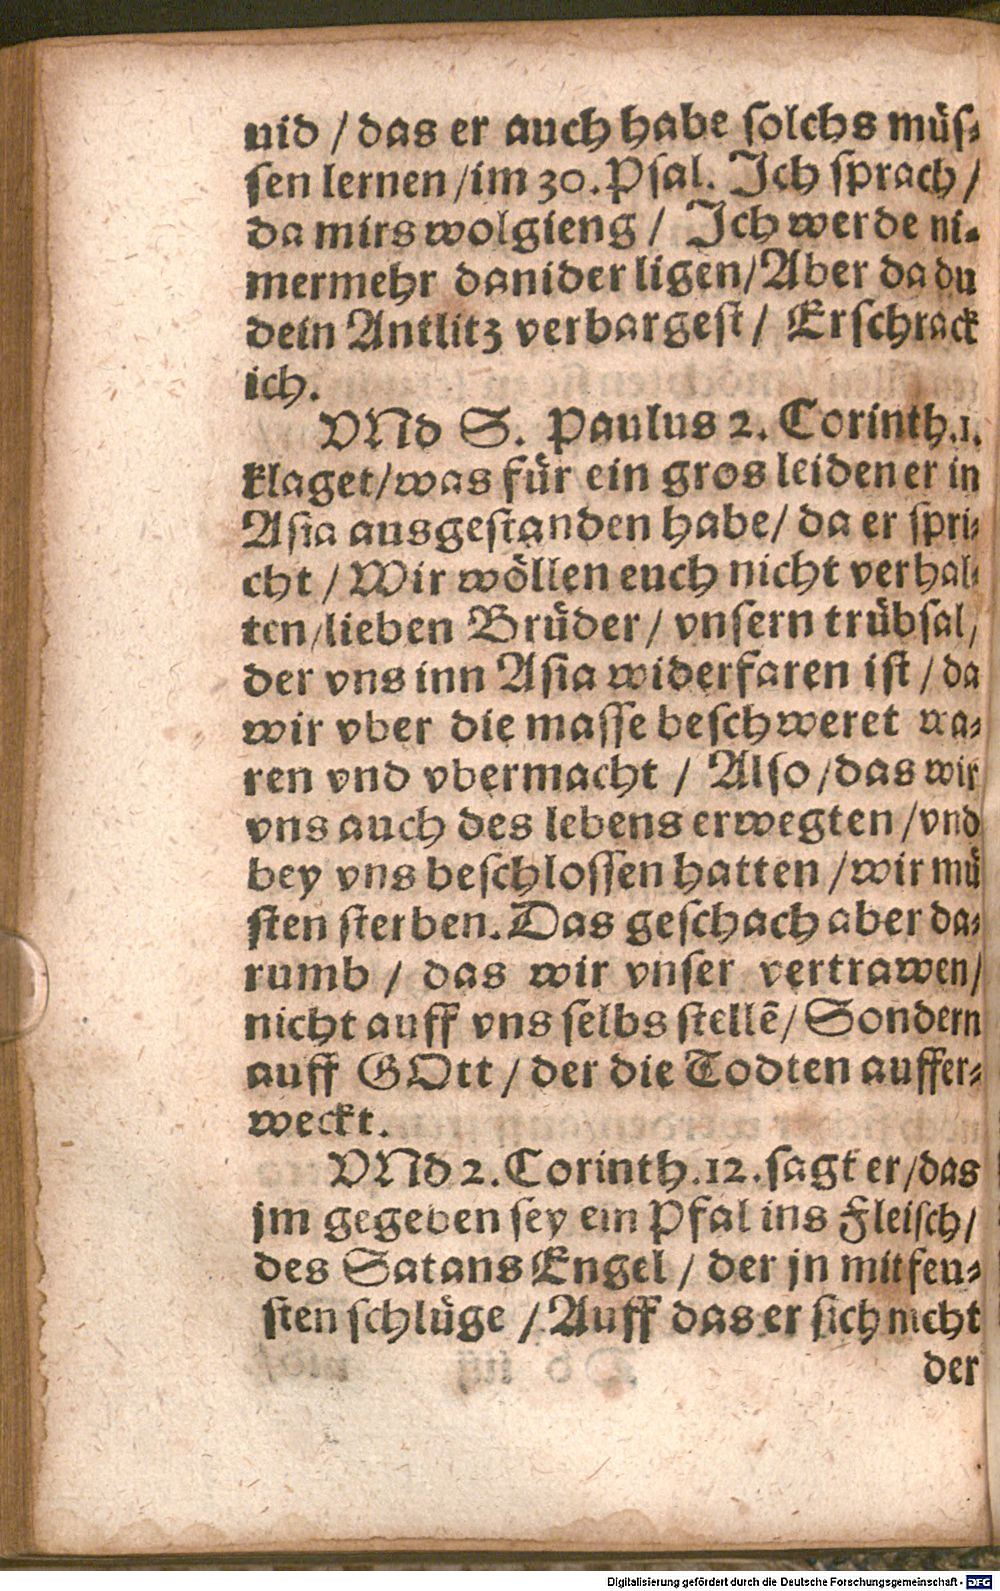 uid / das er auch habe ſolchs müſ⸗
ſen lernen / im 30. Pſal. Ich ſprach /
da mirs wolgieng / Ich werde ni⸗
mermehr daniderligen / Aber da du
dein Antlitz verbargeſt / Erſchrack
ich.
VNd S. Paulus 2. Corinth. 1.
klaget / was für ein gros leiden er in
Aſia ausgeſtanden habe / da er ſpri⸗
cht / Wir wöllen euch nicht verhal⸗
ten / lieben Brüder / vnſern trübſal /
der vns inn Aſia widerfaren iſt / da
wir vber die maſſe beſchweret wa⸗
ren vnd vbermacht / Alſo / das wir
vns auch des lebens erwegten / vnd
bey vns beſchloſſen hatten / wir mü
ſten ſterben. Das geſchach aber da⸗
rumb / das wir vnſer vertrawen /
nicht auff vns ſelbs ſtellē / Sondern
auff GOtt / der die Todten auffer⸗
weckt.
VNd 2. Corinth. 12. ſagt er / das
jm gegeben ſey ein Pfal ins Fleiſch /
des Satans Engel / der jn mit feu⸗
ſten ſchlüge / Auff das er ſich nicht
der
Digitalisierung gefördert durch die Deutsche Forschungsgemeinschaft - DFG